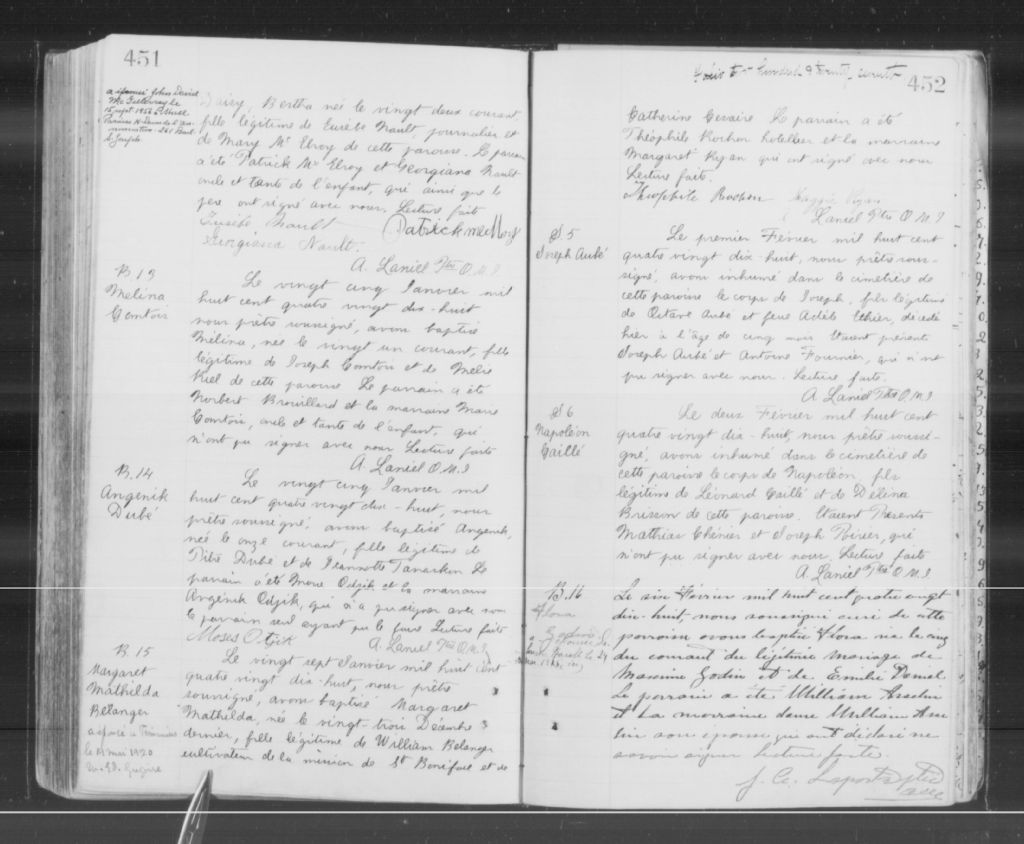 451
a épousé John David
Mc Gillivray le
15 sept. 1956
Paroisse N-Dame de
St Joseph
Daisy, Bertha née le vingt deux courant
fille légitime de Eusèbe Nault, journalier et
de Mary Mc Elroy de cette paroisse. Le parrain
a été Patrick Mc Elroy et Georgiana Nault
oncle et tante de l'enfant, qui ainsi que le
père ont signé avec nous. Lecture faite
Eusèbe Nault Patrick
Georgiana Nault.
A. Laniel Ptre O.M.I.
B. 13
Mélina
Comtois
Le vingt cinq Janvier mil
huit cent quatre vingt dix-huit
nous prêtre soussigné, avons baptisé
Mélina, née le vingt un courant, fille
légitime de Joseph Comtois et de Mélie
Riel de cette paroisse Le parrain a été
Norbert Brouillard et la marraine Marie
Comtois, oncle et tante de l'enfant, qui
n'ont pu signer avec nous Lecture faite
A. Laniel O.M.I
B. 14
Angenik
Dubé
Le vingt cinq Janvier mil
huit cent quatre vingt dix-huit, nous
prêtre soussigné, avons baptisé Angenik,
née le onze courant, fille légitime de
Pitre Dubé et de Jeannette Le
parrain a été Moise Odjik et la marraine
Angénik Odjik, qui n'a pu signer avec nous
le parrain seul ayant pu le faire Lecture faite
Moses Otjik
A. Laniel Ptre O.M.I
B. 15
Margaret
Mathilda
Bélanger
a épousé à
le mai 1920
Le vingt sept Janvier mil huit cent
quatre vingt dix-huit, nous prêtre
soussigné, avons baptisé Margaret
Mathilda, née le vingt-trois Décembre
dernier, fille légitime de William Bélanger
cultivateur de la mission de St Boniface et de
452
Catherine Cesaire Le parrain a été
Théophile Rochon hotellier et la marraine
Margaret Ryan qui ont signé avec nous
Lecture faite.
Théophile Rochon Maggie Ryan
Laniel Ptre O.M.I
S. 5
Joseph Aubé
Le premier Février mil huit cent
quatre vingt dix-huit, nous prêtre sous-
signé, avons inhumé dans le cimetière de
cette paroisse le corps de Joseph, fils légitime
de Octave Aubé et feue Adèle Ethier, décédé
hier à l'âge de cinq mois Etaient présents
Joseph Aubé et Antoine Fournier, qui n'ont
pu signer avec nous. Lecture faite.
A Laniel Ptre O.M.I
S. 6
Napoléon
Caillé
Le deux Février mil huit cent
quatre vingt dix-huit, nous prêtre soussi-
gné, avons inhumé dans le cimetière de
cette paroisse le corps de Napoléon fils
légitime de Léonard Caillé et de Délina
Brisson de cette paroisse. Etaient Présents
Mathias Chénier et Joseph Poirier, qui
n'ont pu signer avec nous. Lecture faite
A. Laniel Ptre O.M.I.
B. 16
Flora
Godin
Le six Février mil huit cent quatre vingt
dix-huit, nous soussigné curé de cette
paroisse avons baptisé Flora née le cinq
du courant du légitime mariage de
Maxime Godin et de Emilie Daniel
Le parrain a été William Asselin
et La marraine dame William Asse
lin son épouse qui ont déclaré ne
savoir signer lecture faite.
J. C. Laporte Ptre